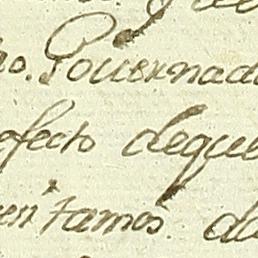 no. Governad
efecto deque
entamos. de